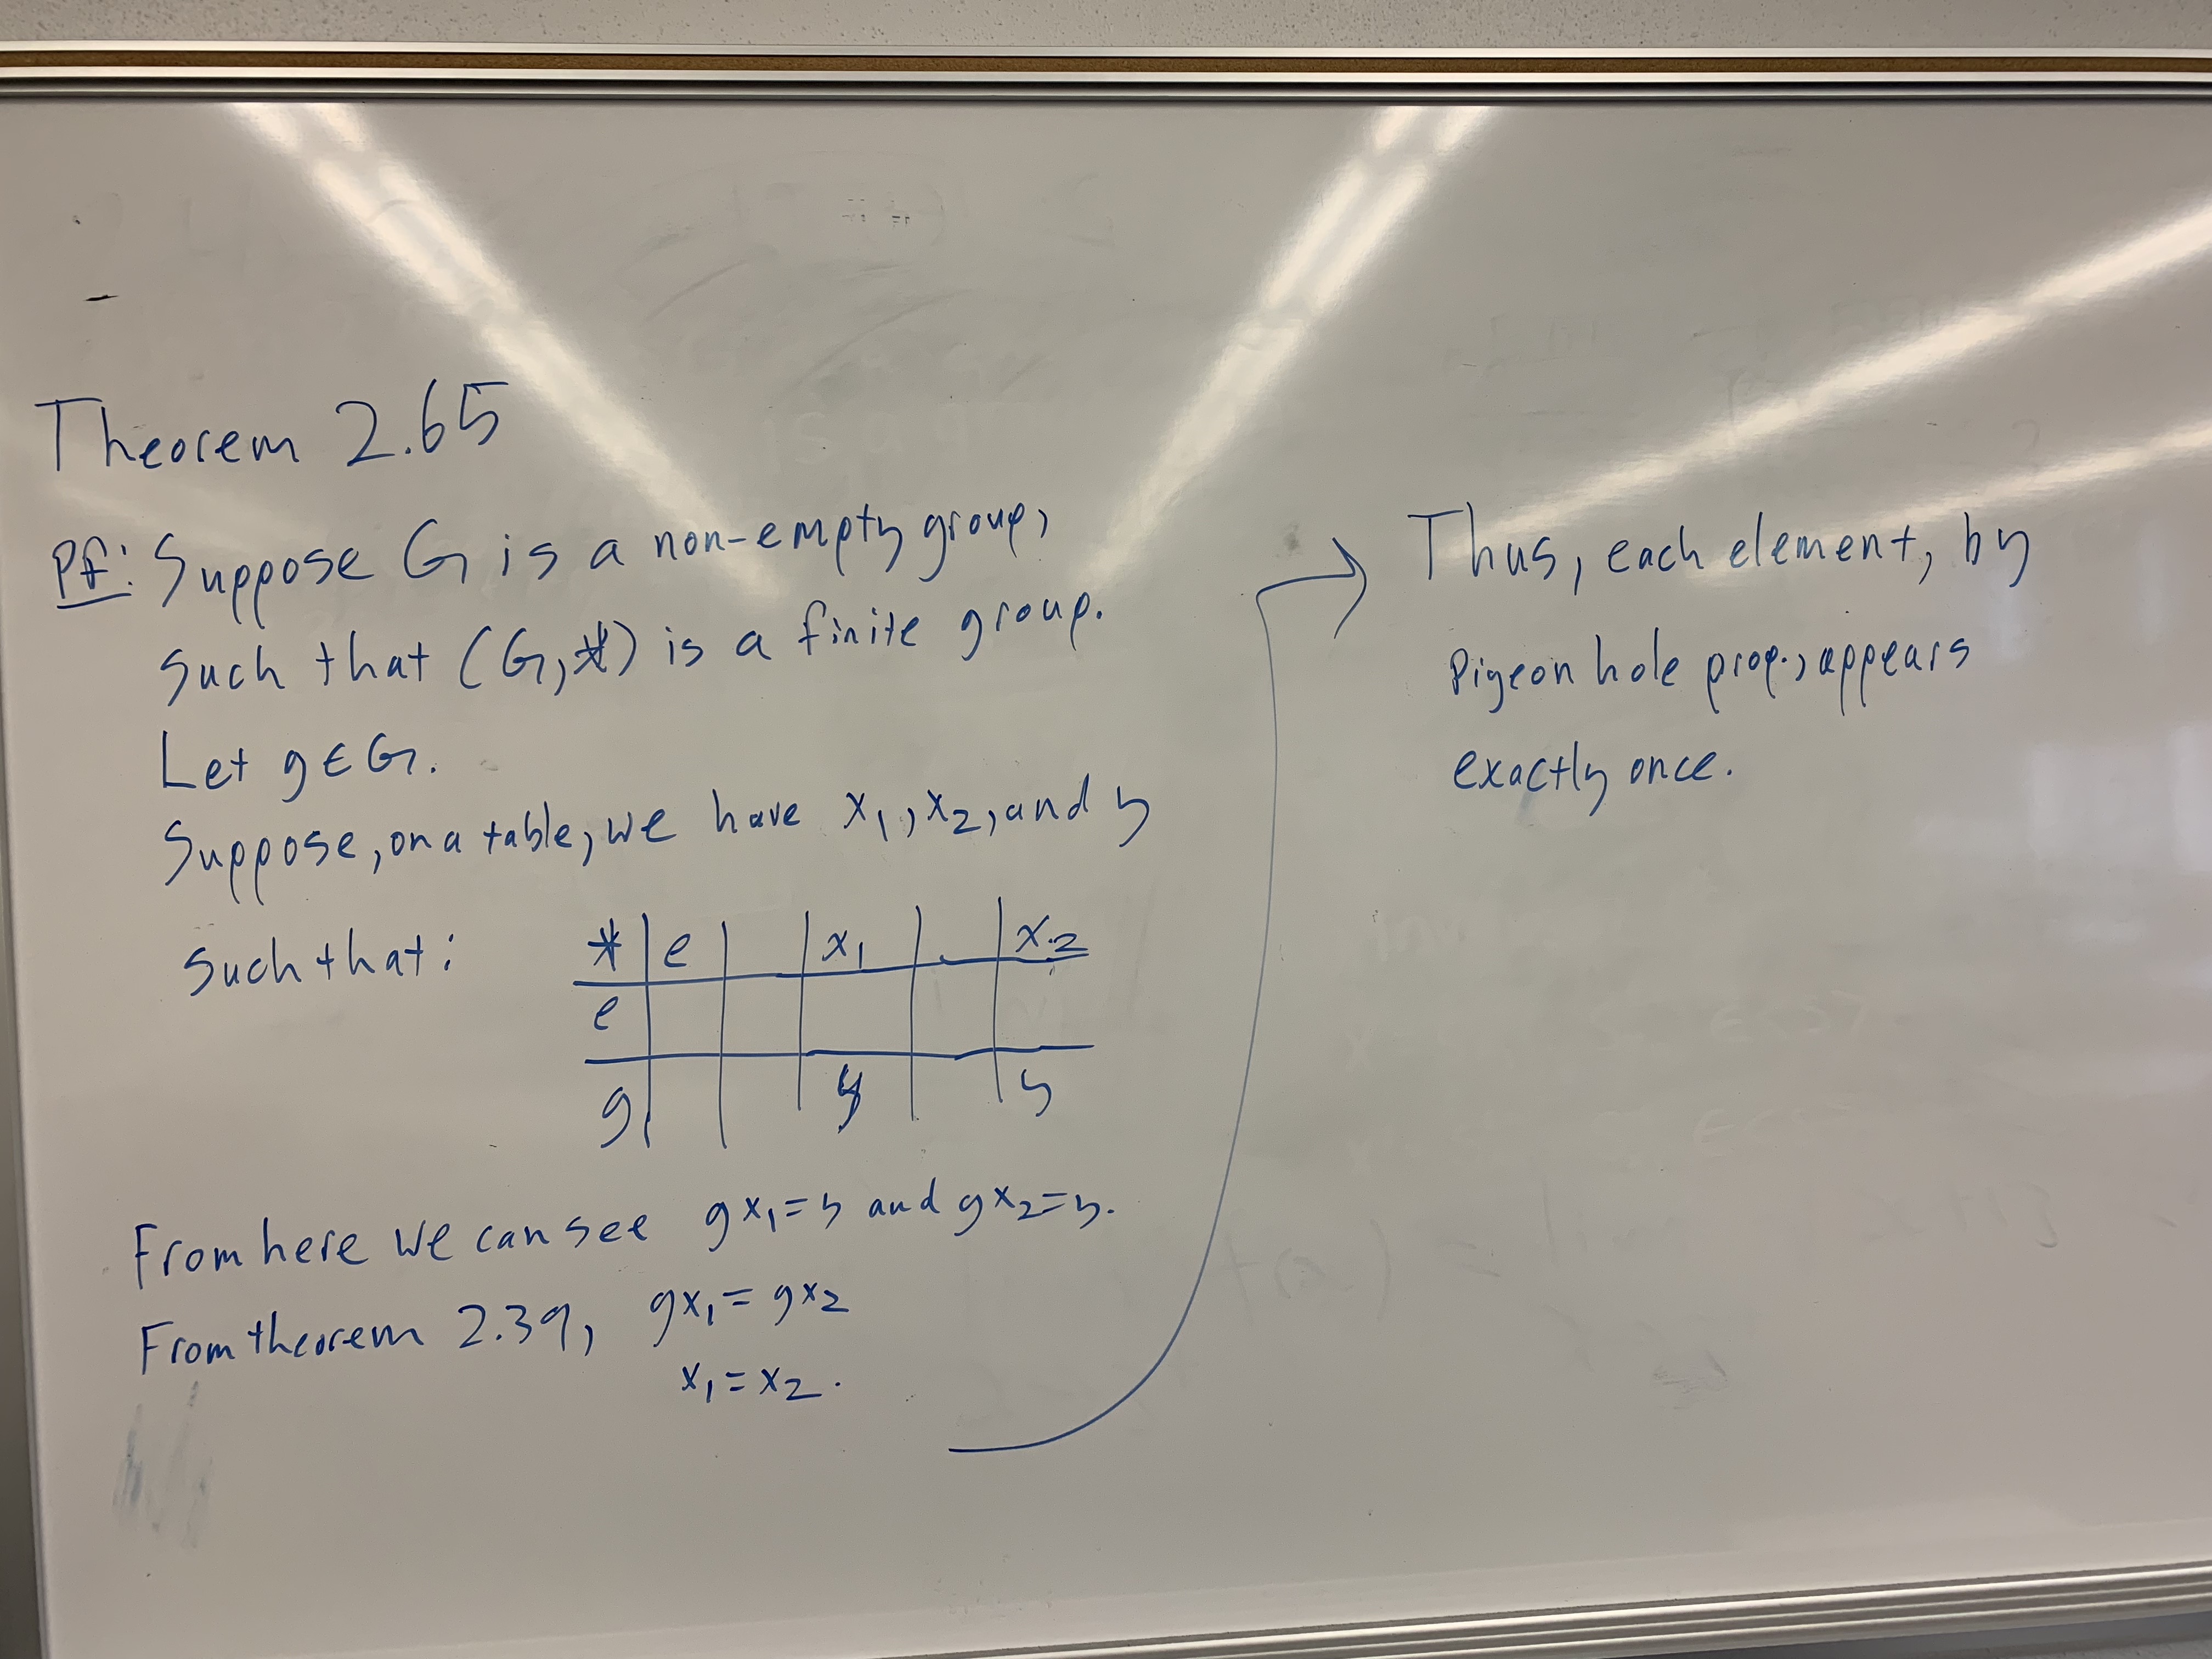 Theorem 2.65
Pf: Suppose G is a non-empty group,
such that (G,*) is a finite group.
Let g ∈ G.
Suppose, on a table, we have x₁, x₂, and y
such that:
* | e | | x₁ | | x₂
e
g | | | y | | y
From here we can see gx₁ = y and gx₂ = y.
From theorem 2.39, gx₁ = gx₂
x₁ = x₂.
Thus, each element, by
Pigeon hole prop., appears
exactly once.